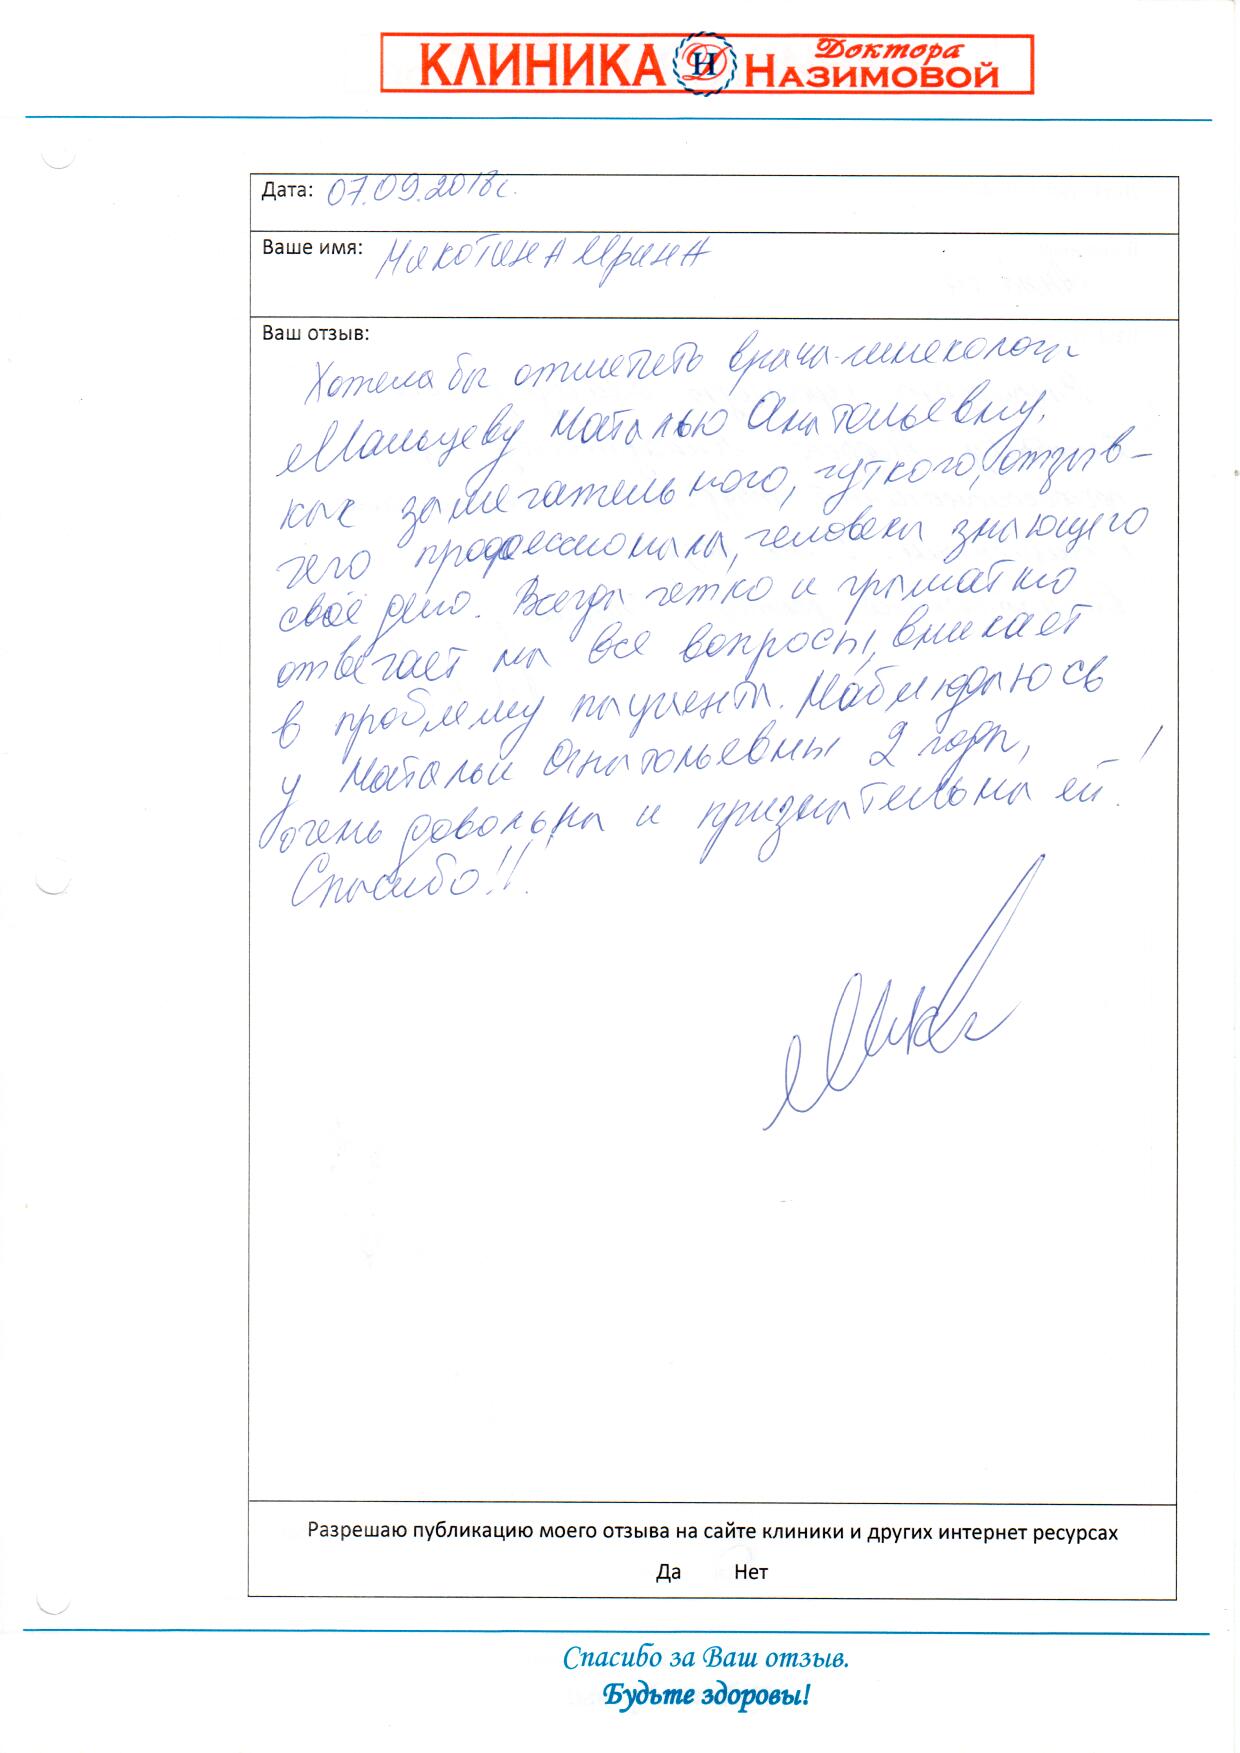 КЛИНИКА Н Доктора Назимовой
Дата: 07.09.2018г.
Ваше имя: Ирина
Ваш отзыв:
Хотела бы отметить врача-гинеколога
Мальцеву Наталью Анатольевну,
как замечательного, чуткого, отзыв-
чего профессионала, человека знающего
своё дело. Всегда четко и граматно
отвечает на все вопросы, вникает
в проблему пациента. Наблюдаюсь
у Натальи Анатольевны 2 года,
очень довольна и признательна ей!
Спасибо!!!
Разрешаю публикацию моего отзыва на сайте клиники и других интернет ресурсах
Да Нет
Спасибо за Ваш отзыв.
Будьте здоровы!